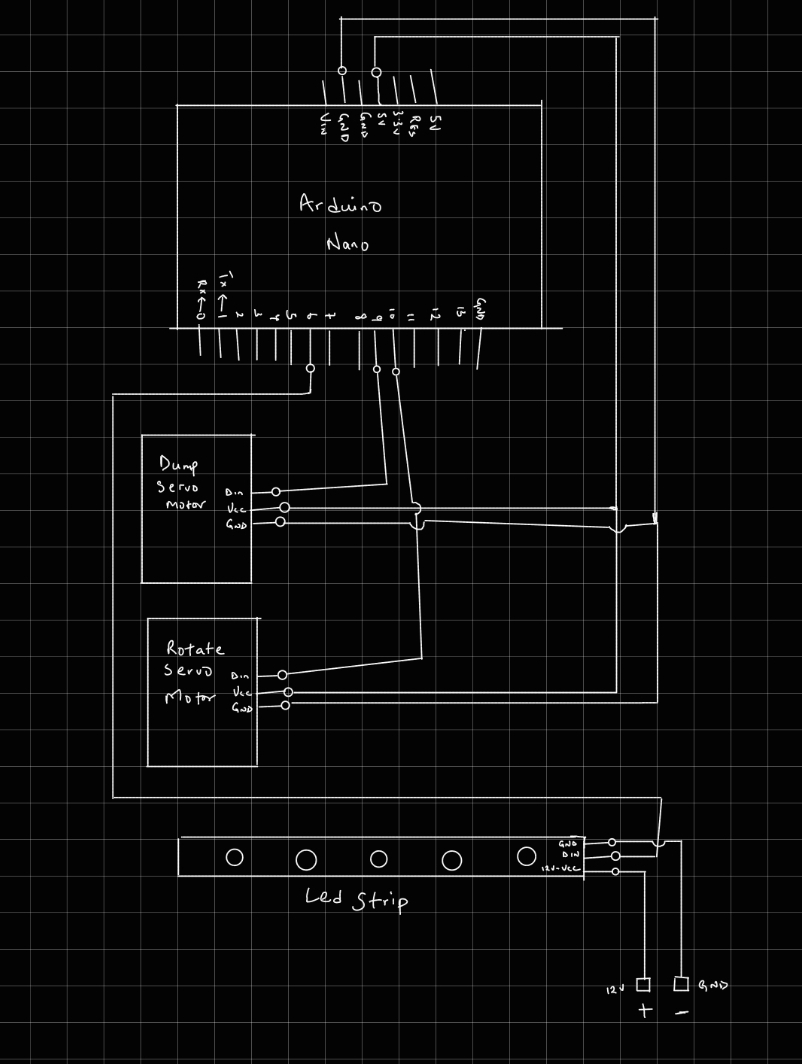 Vin
GND
GND
5V
3.3V
RES
5V
Arduino
Nano
Rx→0
Tx→1
2
3
4
5
6
7
8
9
10
11
12
13
GND
Dump
Servo
Motor
Din
Vcc
GND
Rotate
Servo
Motor
Din
Vcc
GND
GND
DIN
12V-VCC
Led Strip
12V
GND
+
-